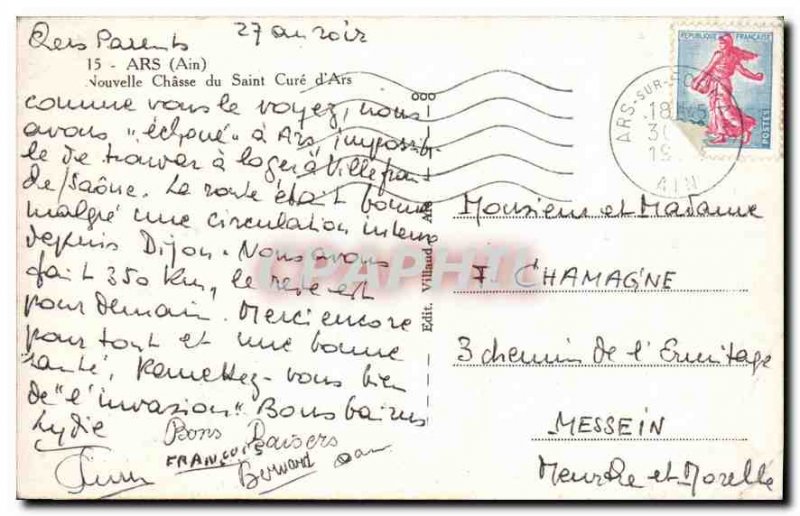 Chers Parents 27 au soir
15 - ARS (Ain)
Nouvelle Châsse du Saint Curé d'Ars
comme vous le voyez, nous
avons "échoué" à Ars, impossib-
le de trouver à loger à Villefran
de/Saône. La route était bonne
malgré une circulation intense
depuis Dijon. Nous avons
fait 350 km, le reste est
pour demain. Merci encore
pour tout et une bonne
santé, Remettez-vous bien
de "l'invasion". Bons baisers
Lydie Bons Baisers
FRANÇOIS Bernard
Edit. Villand
CPAPHIL
REPUBLIQUE FRANÇAISE
POSTES
ARS-SUR-FO
18 H45
30
19
AIN
Monsieur et Madame
F CHAMAGNE
3 chemin de l'Ermitage
MESSEIN
Meurthe et Moselle